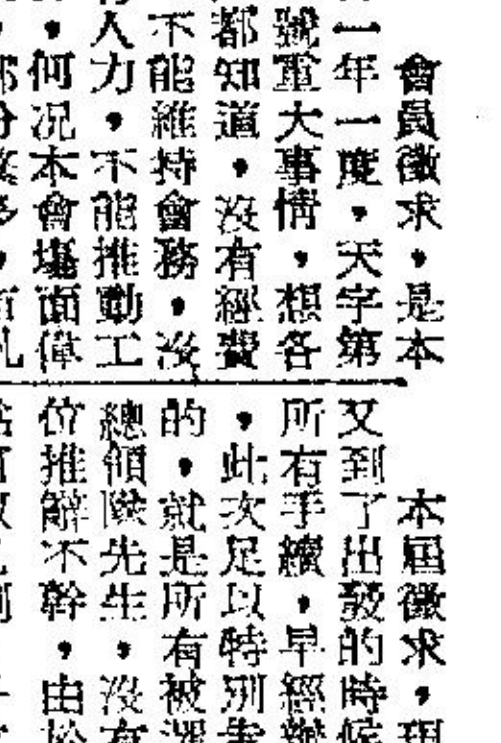 會員徵求，是本
一年一度，天字第
號重大事情，想各
都知道，沒有經費
不能維持會務，沒
人力，不能推動工
，何况本會塲面偉
本屆徵求，現
又到了出發的時候
所有手續，早經辦
，此次足以特別告
的，就是所有被選
總領隊先生，沒有
位推辭不幹，由於